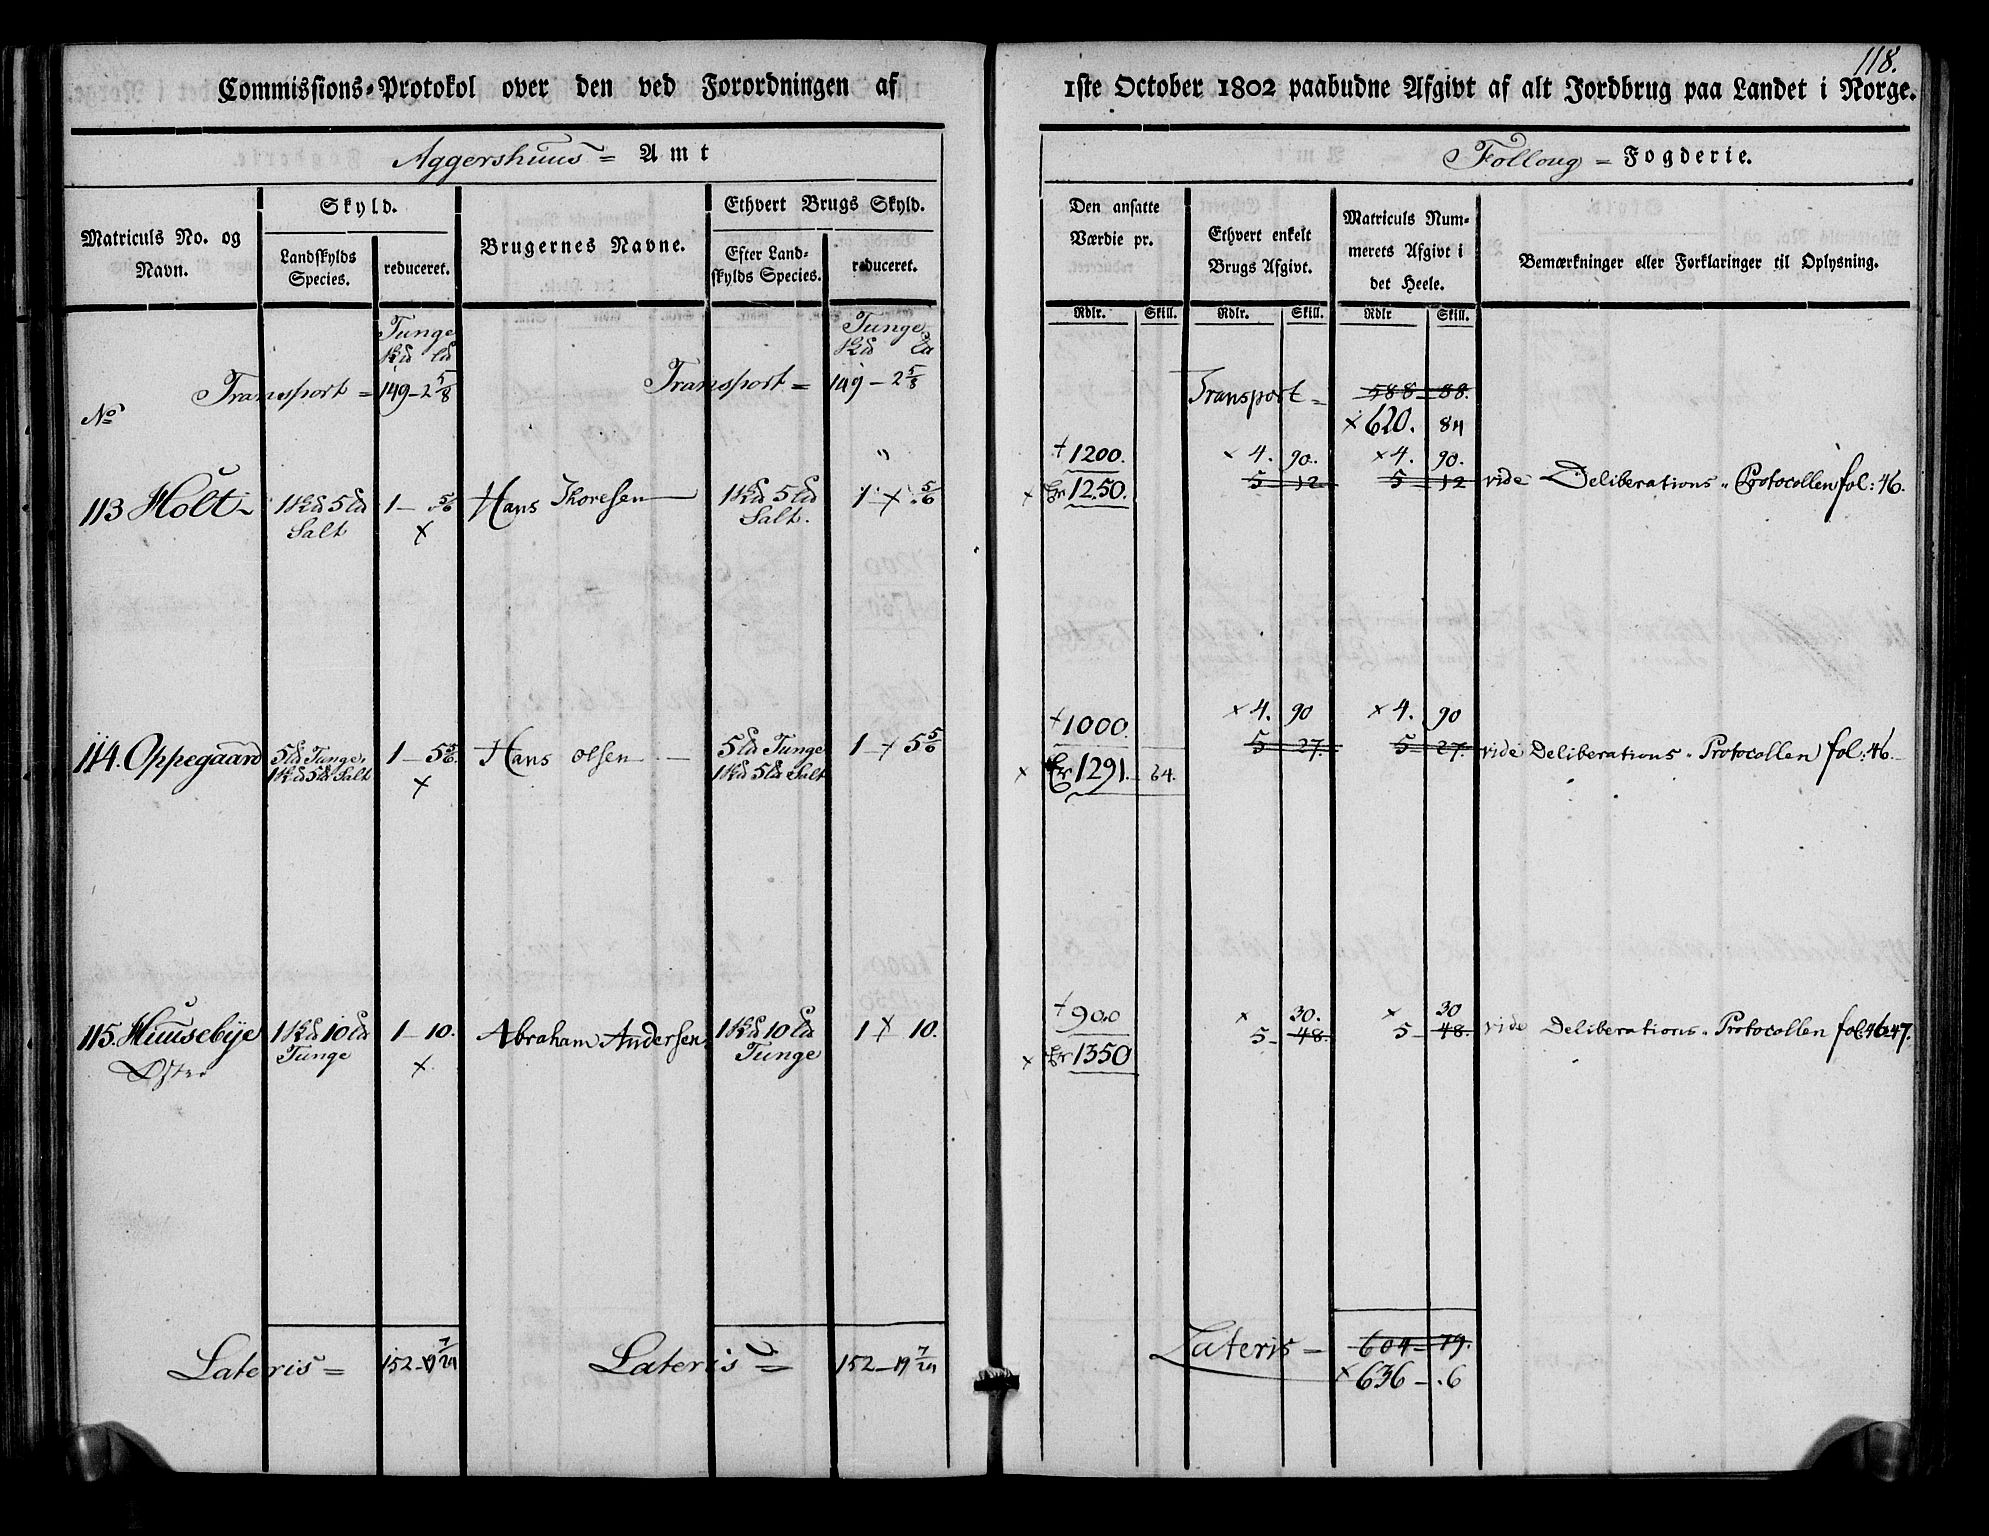 118.
Commissions-Protokol over den ved Forordningen af 1ste October 1802 paabudne Afgivt af alt Jordbrug paa Landet i Norge.
Aggershuus = Amt
Folloug = Fogderie.
Matriculs No. og Navn.
Skyld.
Landskylds Species.
reduceret.
Brugernes Navne.
Ethvert Brugs Skyld.
Efter Landskylds Species.
reduceret.
Den ansatte Værdie pr.
Ethvert enkelt Brugs Afgivt.
Matriculs Nummerets Afgivt i det Heele.
Bemærkninger eller Forklaringer til Oplysning.
Rdlr. Skill. Rdlr. Skill. Rdlr Skill.
Tunge Tunge
Transport = 149 - 2 5/8 Transport = 149 - 2 5/8 Transport = 588 - 88.
× 620. 84
No
+ 1200. × 4. 90. × 4. 90.
113 Holt 1 Hd 5 Ld 1 - 5 5/6 Hans Thoresen 1 Hd 5 Ld 1 × 5 5/6 × Er 1250. 5 12 5 12 vide Deliberations-Protocollen fol: 46.
Salt × Salt.
+ 1000. × 4. 90 × 4. 90
114. Oppegaard 5 Ld Tunge, 1 - 5 5/6. Hans Olsen 5 Ld Tunge 1 × 5 5/6 5 27. 5 27. vide Deliberations-Protocollen fol: 46.
1 Hd 5 Ld Salt × 1 Hd 5 Ld Salt × Er 1291. 64.
+ 900 × 30. × 30
115. Huusebye 1 Hd 10 Ld 1 - 10. Abraham Andersen 1 Hd 10 Ld 1 × 10. 5 - 48. 5 - 48. vide Deliberations-Protocollen fol: 46 & 47.
Øster Tunge × Tunge × Er 1350
Lateris = 152 - 19 7/24 Lateris = 152 - 19 7/24 Lateris - 604 - 79.
× 636 - . 6